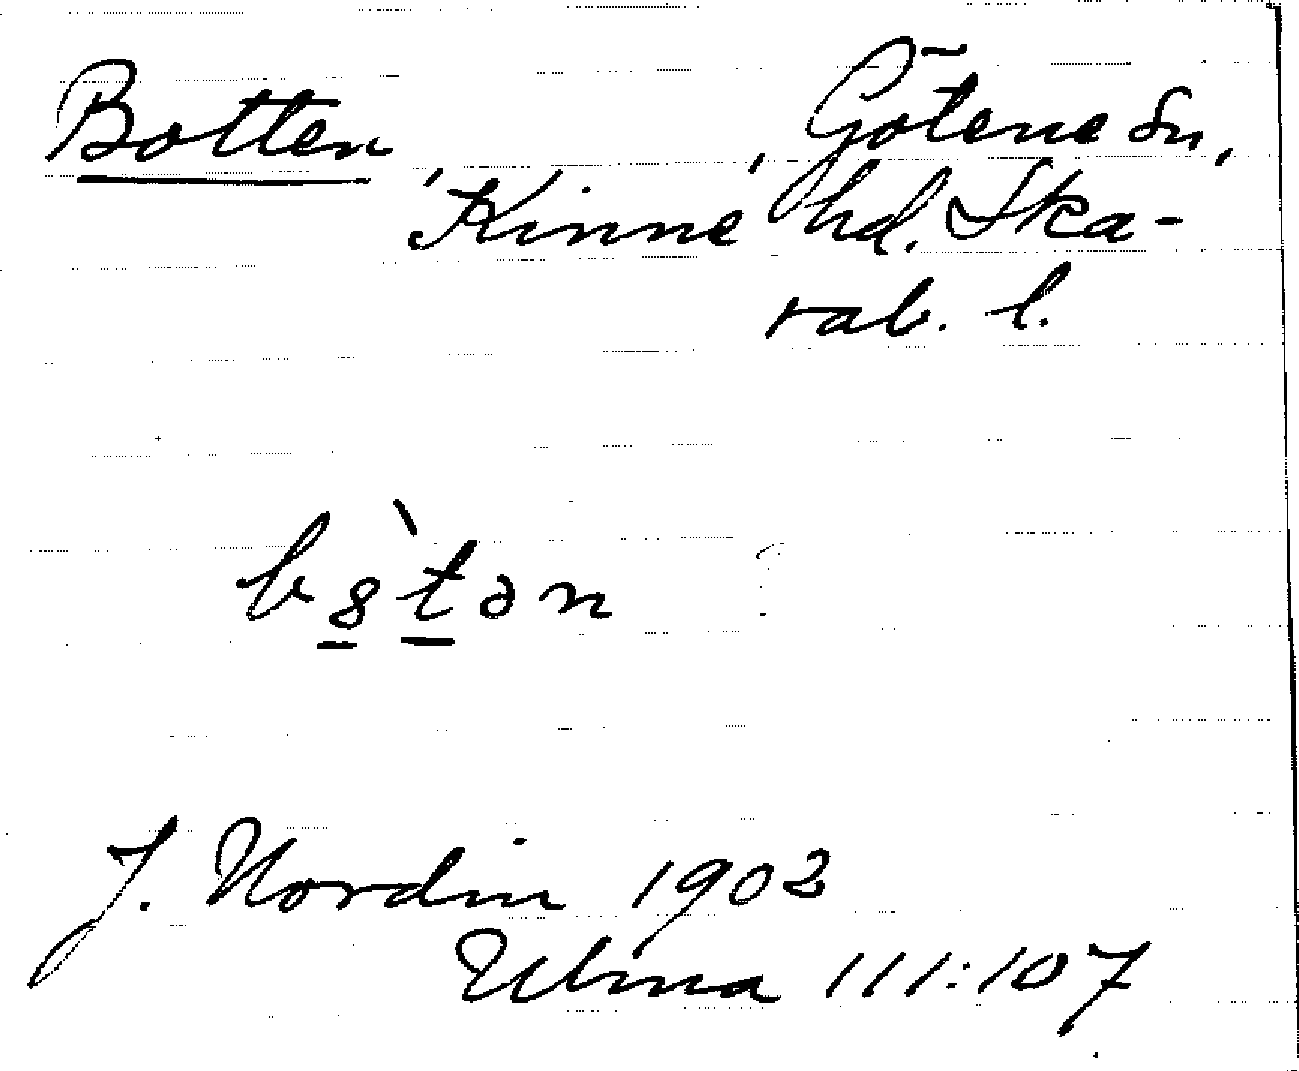 Botten, , Götene Sn,
Kinne hd. Ska-
rab. l.
b8̲̀t̲ən
J. Nordin 1903
Ulma 111:107